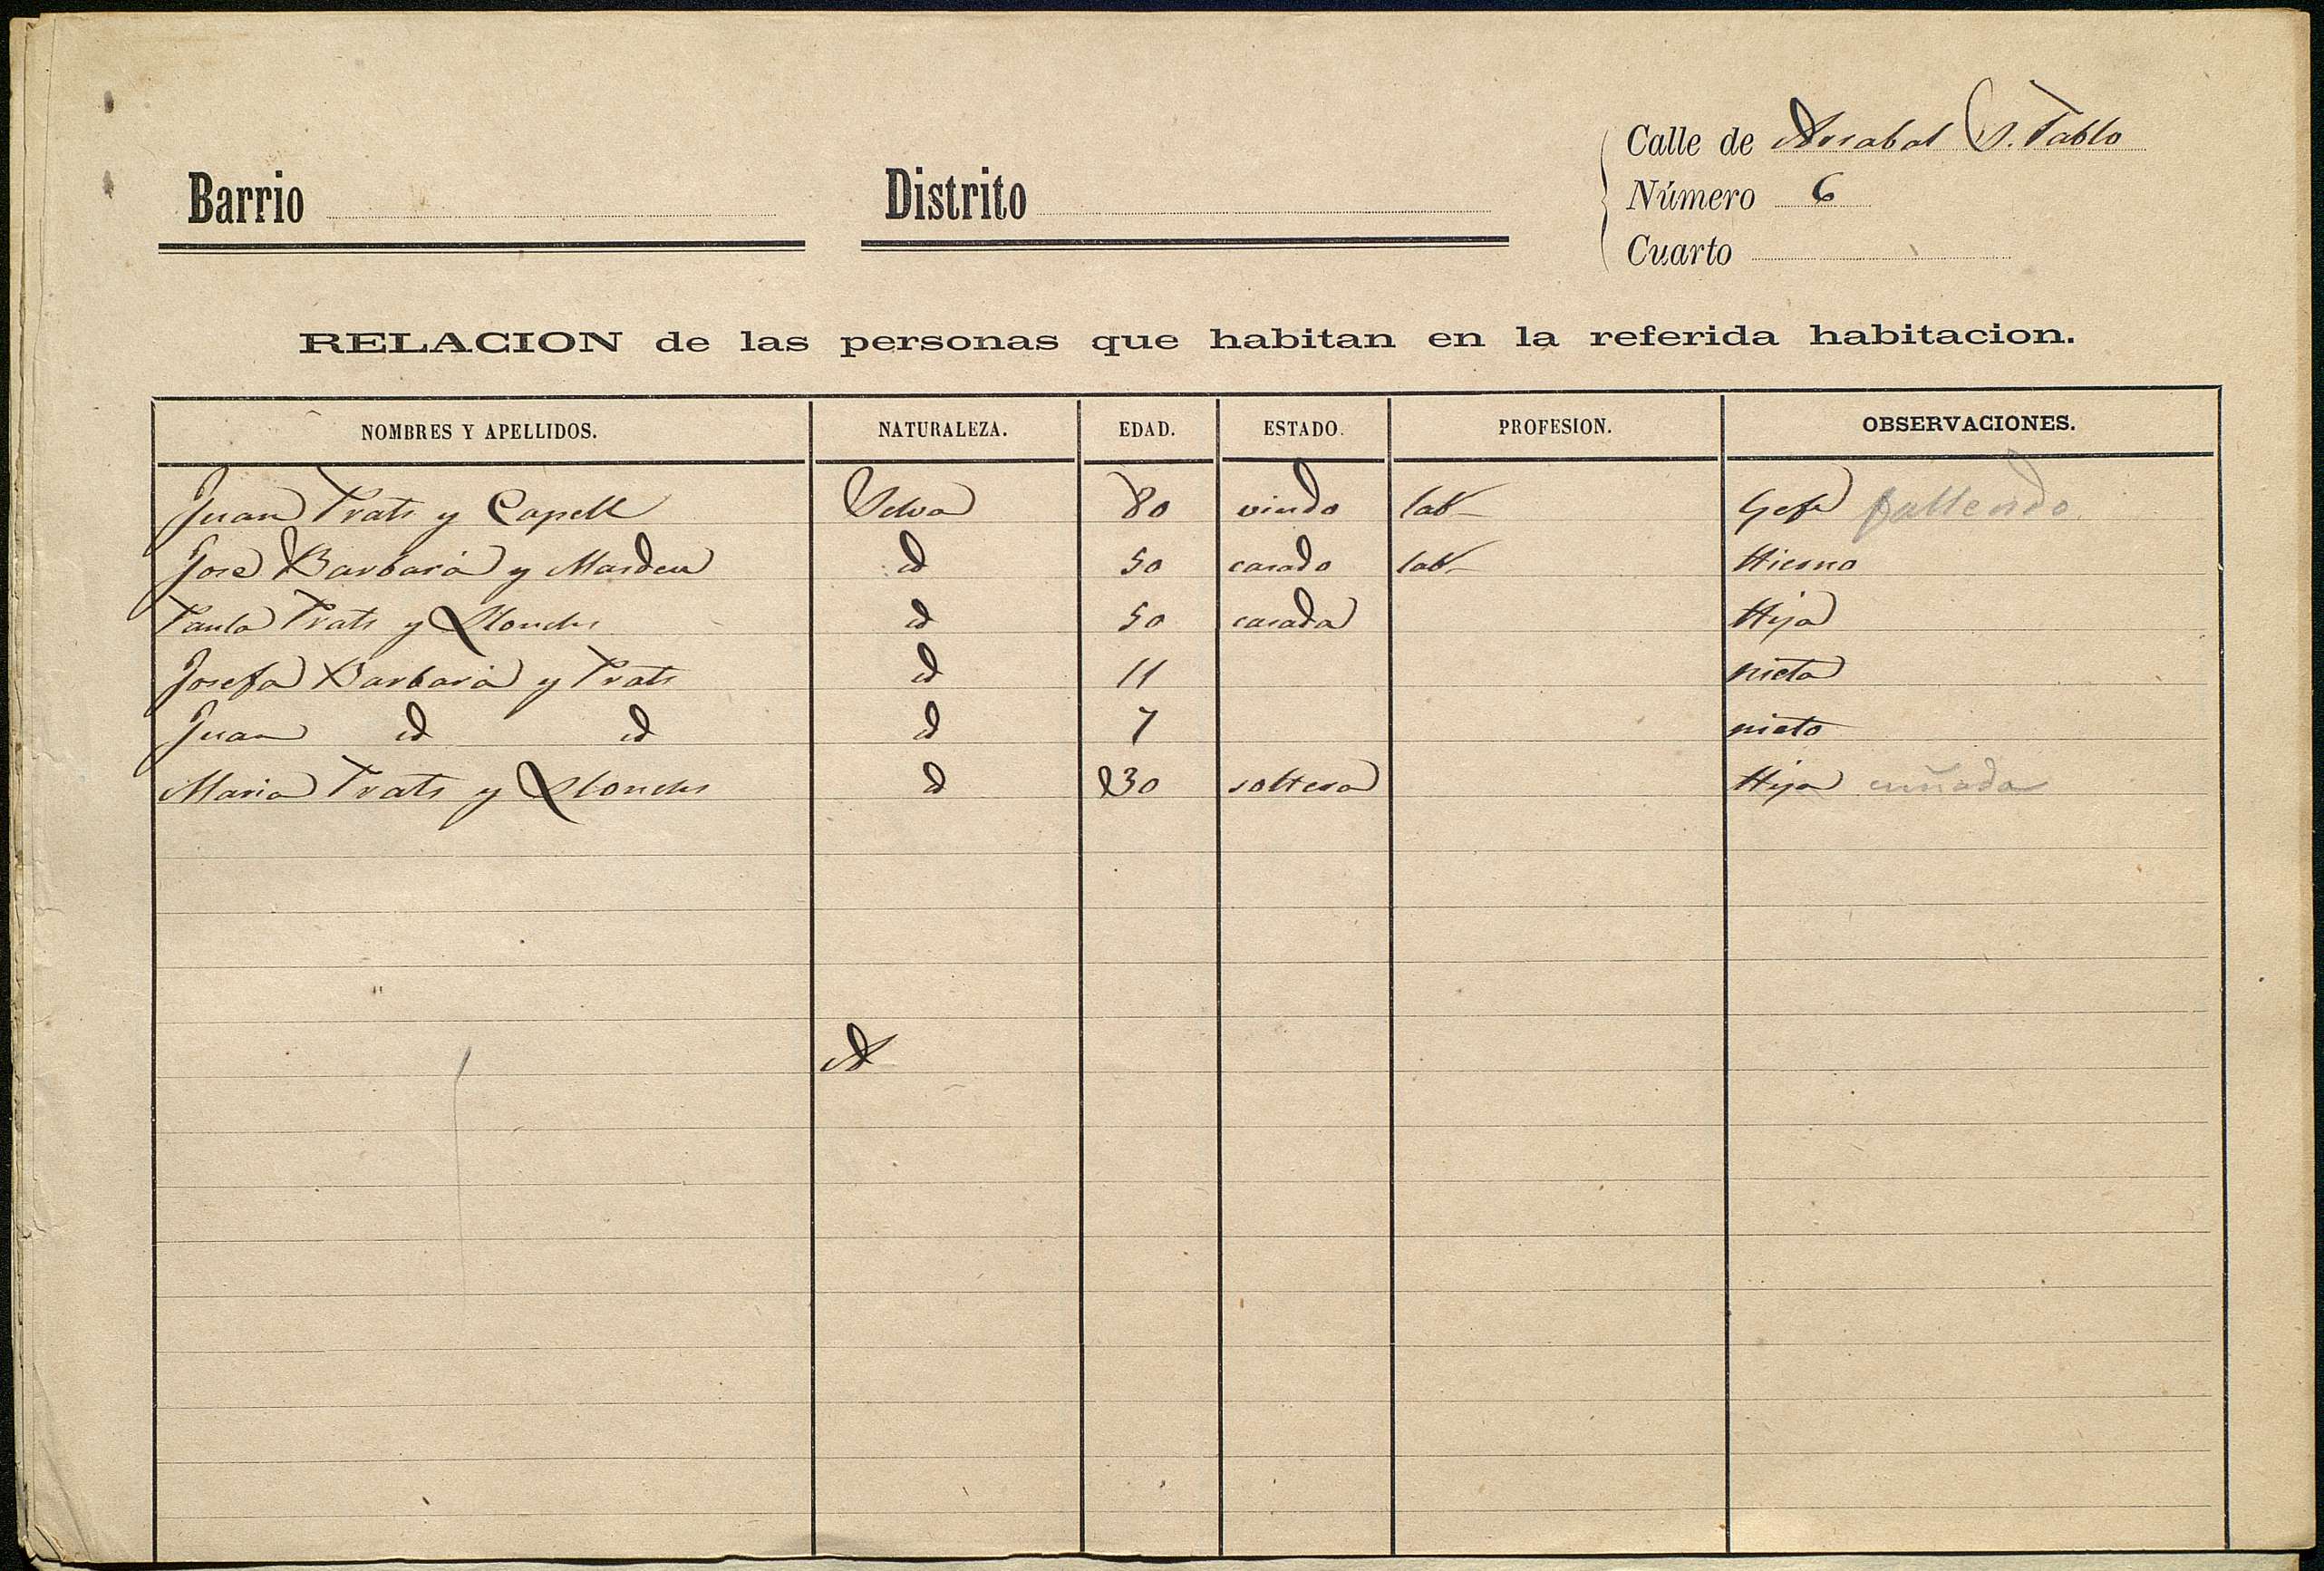 Calle de Arrabal S. Pablo
Barrio Distrito Número 6
Cuarto
RELACION de las personas que habitan en la referida habitacion.
NOMBRES Y APELLIDOS. NATURALEZA. EDAD. ESTADO. PROFESION. OBSERVACIONES.
Juan Prats y Capell Selva 80 viudo lab Gefe fallecido
José Barbará y Masdeu id 50 casado lab Hierno
Paula Prats y id 50 casada Hija
Josefa Barbará y Prats id 11 nieta
Juan id id id 7 nieto
Maria Prats y id 30 soltera Hija cuñada
A